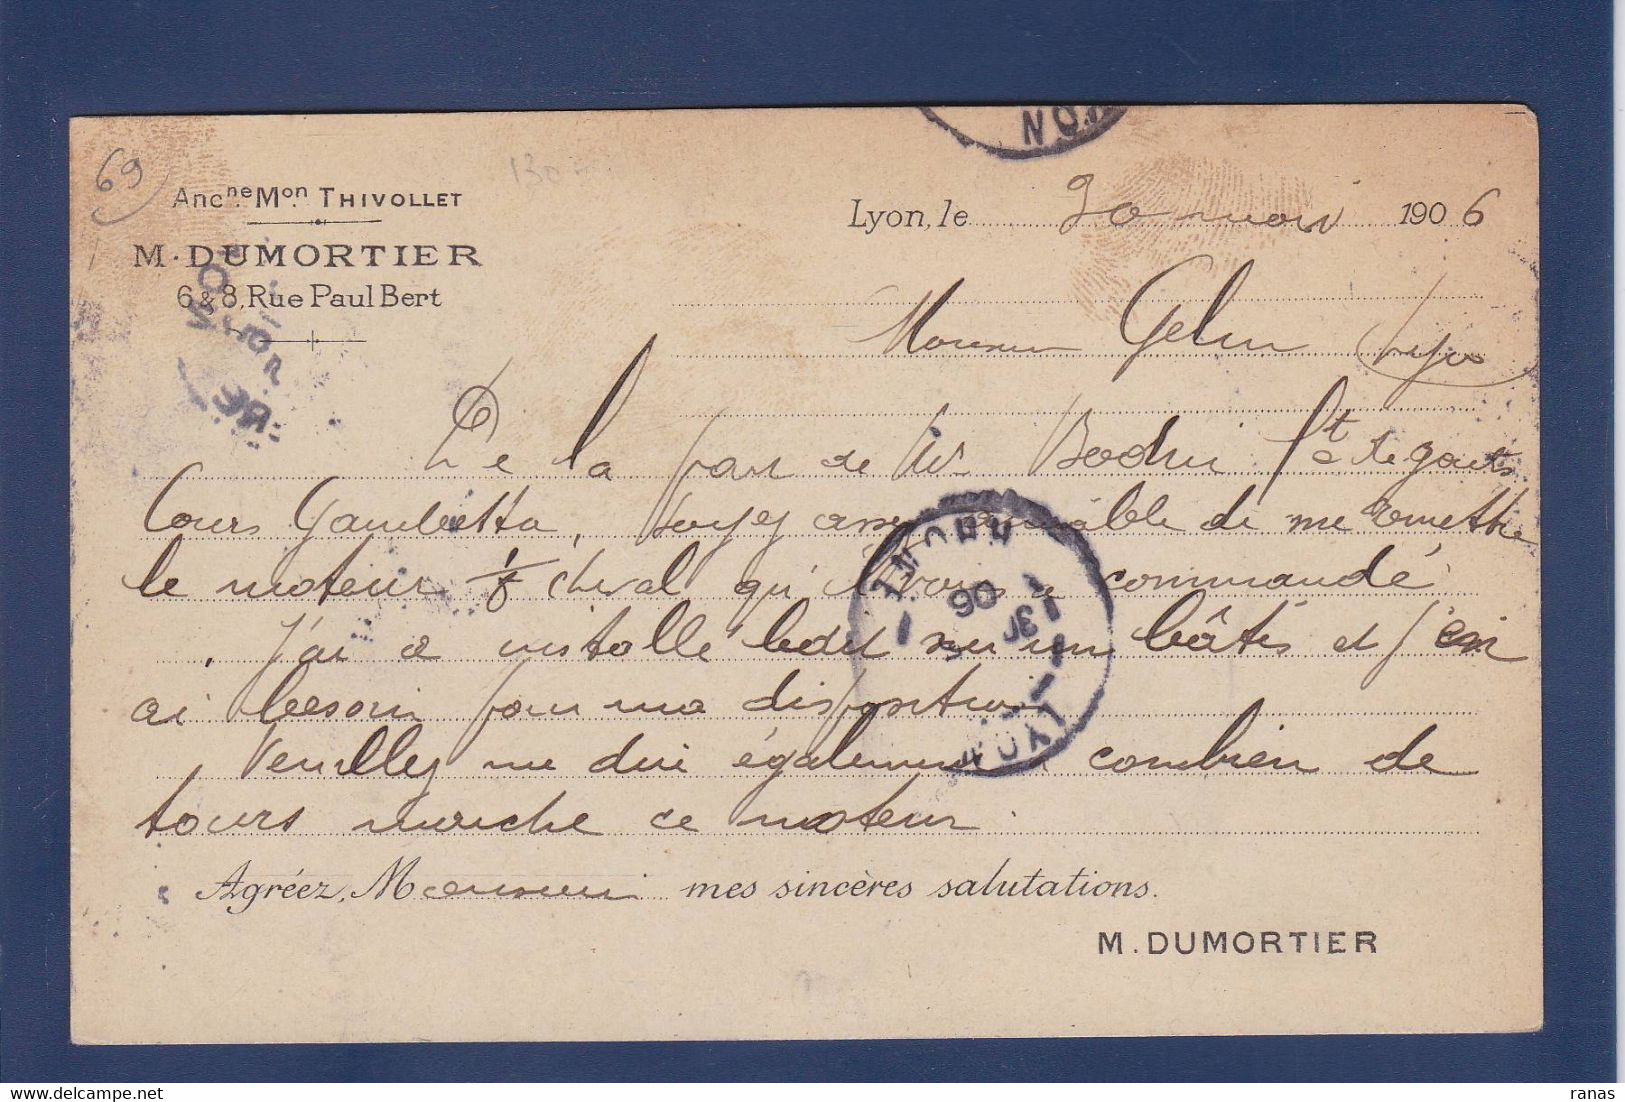 69
Anc.ne Mon. THIVOLLET
M. DUMORTIER
6 & 8, Rue Paul Bert
Lyon, le 30 1906
Monsieur Gelin Lyon
De la part de Mr
Cours Gambetta, soyez assez aimable de me remettre
le moteur cheval qu' commandé
J'ai a installé ledit sur un bâtis et j'en
ai besoin pour ma disposition
Veuillez me dire également combien de
tours marche ce moteur.
Agréez, Monsieur mes sincères salutations.
M. DUMORTIER
LYON
RHONE
06
ranas